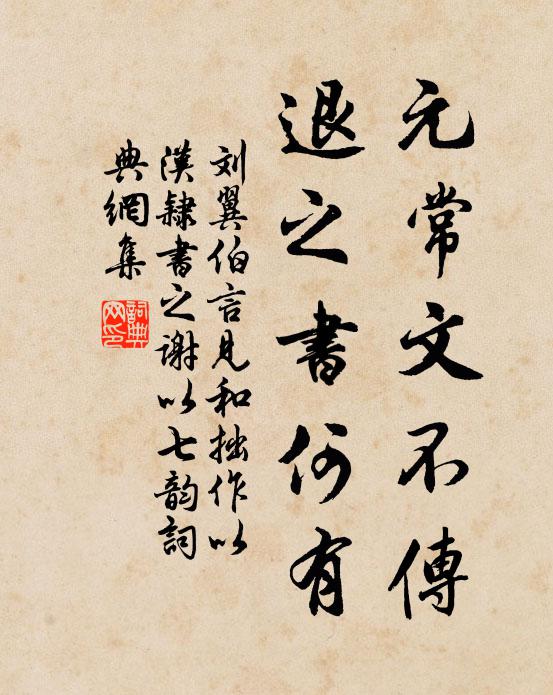 元常文不傳
退之書何有
刘翼伯言見和拙作以
漢隸書之謝以七韵詞
典網集
詞典
网印